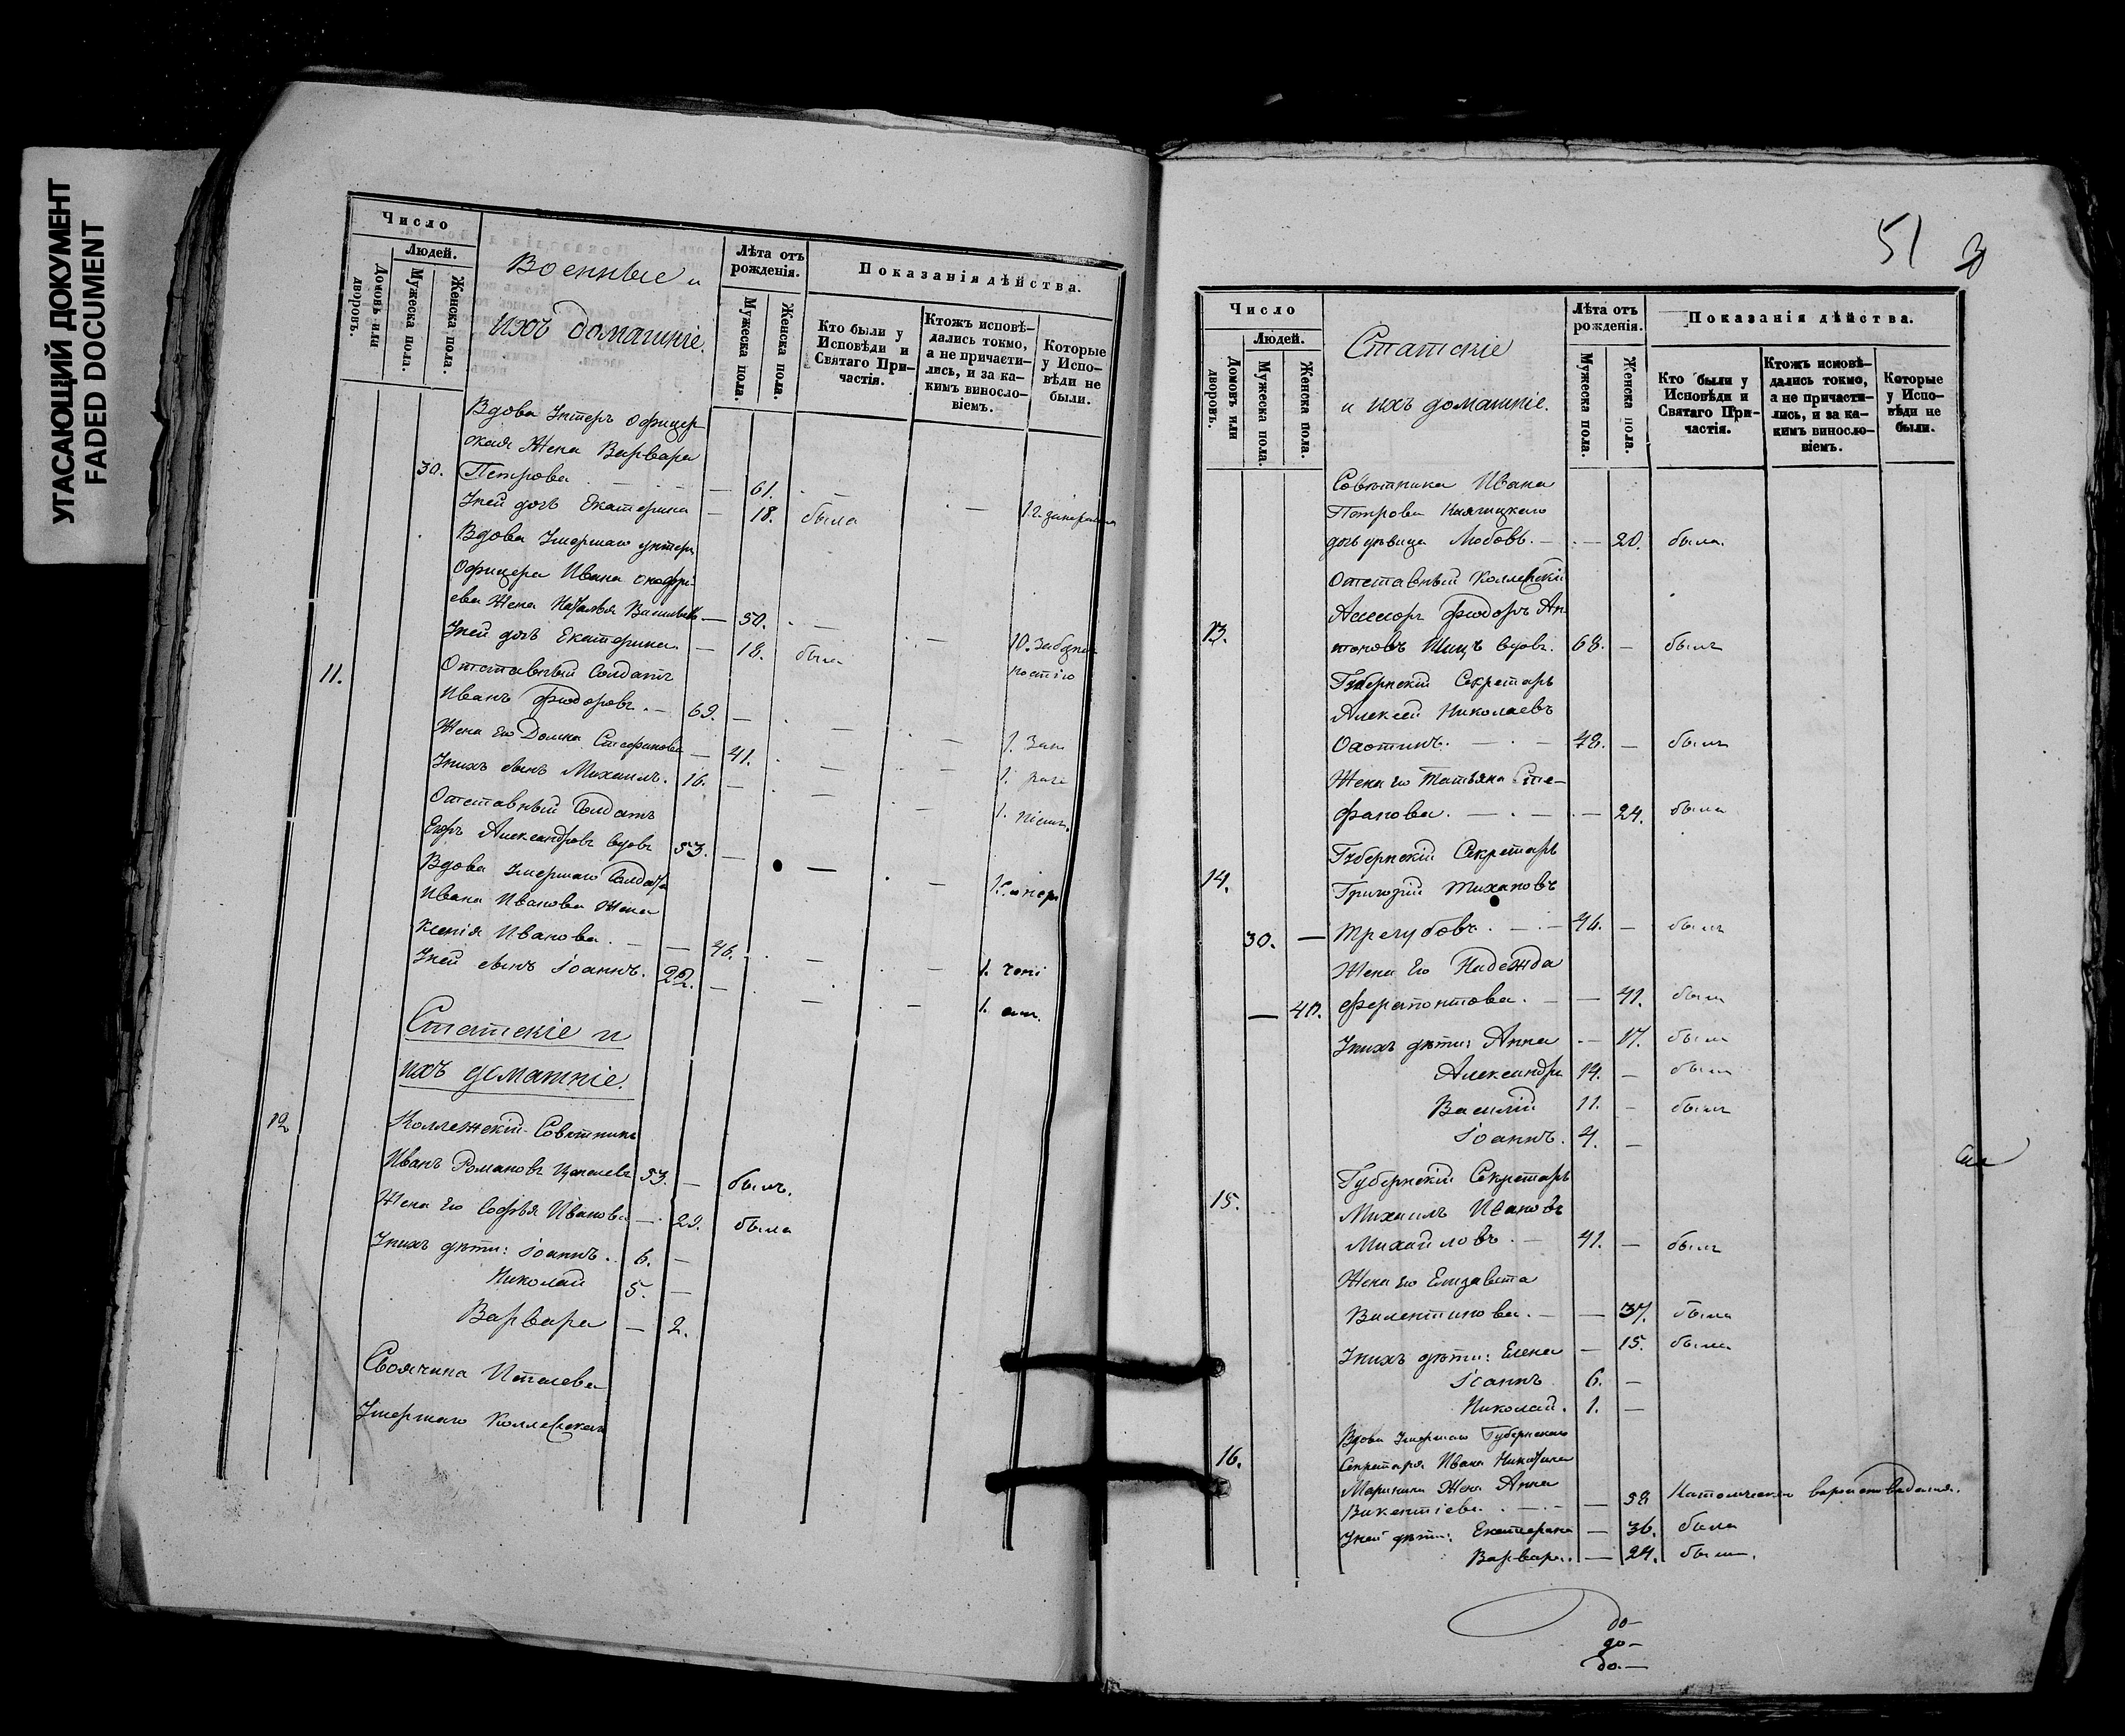 УГАСАЮЩИЙ ДОКУМЕНТ
FADED DOCUMENT
Число
Людей.
Домовъ или дворовъ.
Мужеска пола.
Женска пола.
Военные и
ихъ домашніе.
Лѣта отъ рожденія.
Мужеска пола.
Женска пола.
Показанія дѣйства.
Кто были у Исповѣди и Святаго Причастія.
Ктожъ исповѣдались токмо, а не причастились, и за какимъ винословіемъ.
Которые у Исповѣди не были.
Вдова Унтеръ Офицер
ская Жена Варвара
30. Петрова — 61. —
Уней дочь Екатерина — 18. была —
Вдова Умершаго унтеръ
Офицера Ивана Онофрі
ева Жена Наталья Васильева — 50. — —
Уней дочь Екатерина. — 18. была
11. Отставный Солдатъ
Иванъ Фіодоровъ. — 69. — — —
Жена Его Домна Стефанова — 41. — — 1.
Унихъ сынъ Михаилъ. 16. — — — 1.
Отставный Солдатъ
Егоръ Александровъ вдовъ 53. — — —
Вдова Умершаго Солдата
Ивана Иванова Жена
Ксенія Иванова. — — 46. — — 1.
Уней сынъ Іоаннъ. 22. — — — 1.
Статскіе и
ихъ домашніе.
12 Коллежскій Совѣтникъ
Иванъ Романовъ 53. — былъ.
Жена Его Софья Иванова — 29. была
Унихъ дѣти: Іоаннъ.. 6. —
Николай 5. —
Варвара — 2.
Своячина
Умершаго Коллежскаго
51
Число
Людей.
Домовъ или дворовъ.
Мужеска пола.
Женска пола.
Статскіе
и ихъ домашніе.
Лѣта отъ рожденія.
Мужеска пола.
Женска пола.
Показанія дѣйства.
Кто были у Исповѣди и Святаго Причастія.
Ктожъ исповѣдались токмо, а не причастились, и за какимъ винословіемъ.
Которые у Исповѣди не были.
Совѣтника Ивана
Петрова
дочь дѣвица Любовь. — — 20. была.
Отставный Коллежскій
Ассесоръ Фіодоръ Ан
13. тоновъ вдовъ. 68. — былъ
Губернскій Секретарь
Алексей Николаевъ
Охотинъ. — — 48. — былъ
Жена его Татьяна Сте-
фанова. — — — 24. была
Губернскій Секретарь
14. Григорій Тихановъ
30. — Трегубовъ. — 46. — былъ
Жена Его Надежда
— 40. Ферапонтова. — — 41. была
Унихъ дѣти: Анна — 17. была
Александръ 14. — былъ
Василій 11. — былъ
Іоаннъ. 4. —
Губернскій Секретарь
15. Михаилъ Ивановъ
Михайловъ. — 41. — былъ
Жена его Елизавета
Валентинова. — — 37. была
Унихъ дѣти: Елена — 15. была
Іоаннъ 6. —
Николай. 1. —
Вдова Умершаго Губернскаго
16. Секретаря Ивана
Жена Анна
Викентіева. — — 58 Католическаго вероисповеданія.
Уней дѣти: Екатерина — 36. была
Варвара. — 24. была.
до —
до —
до. —